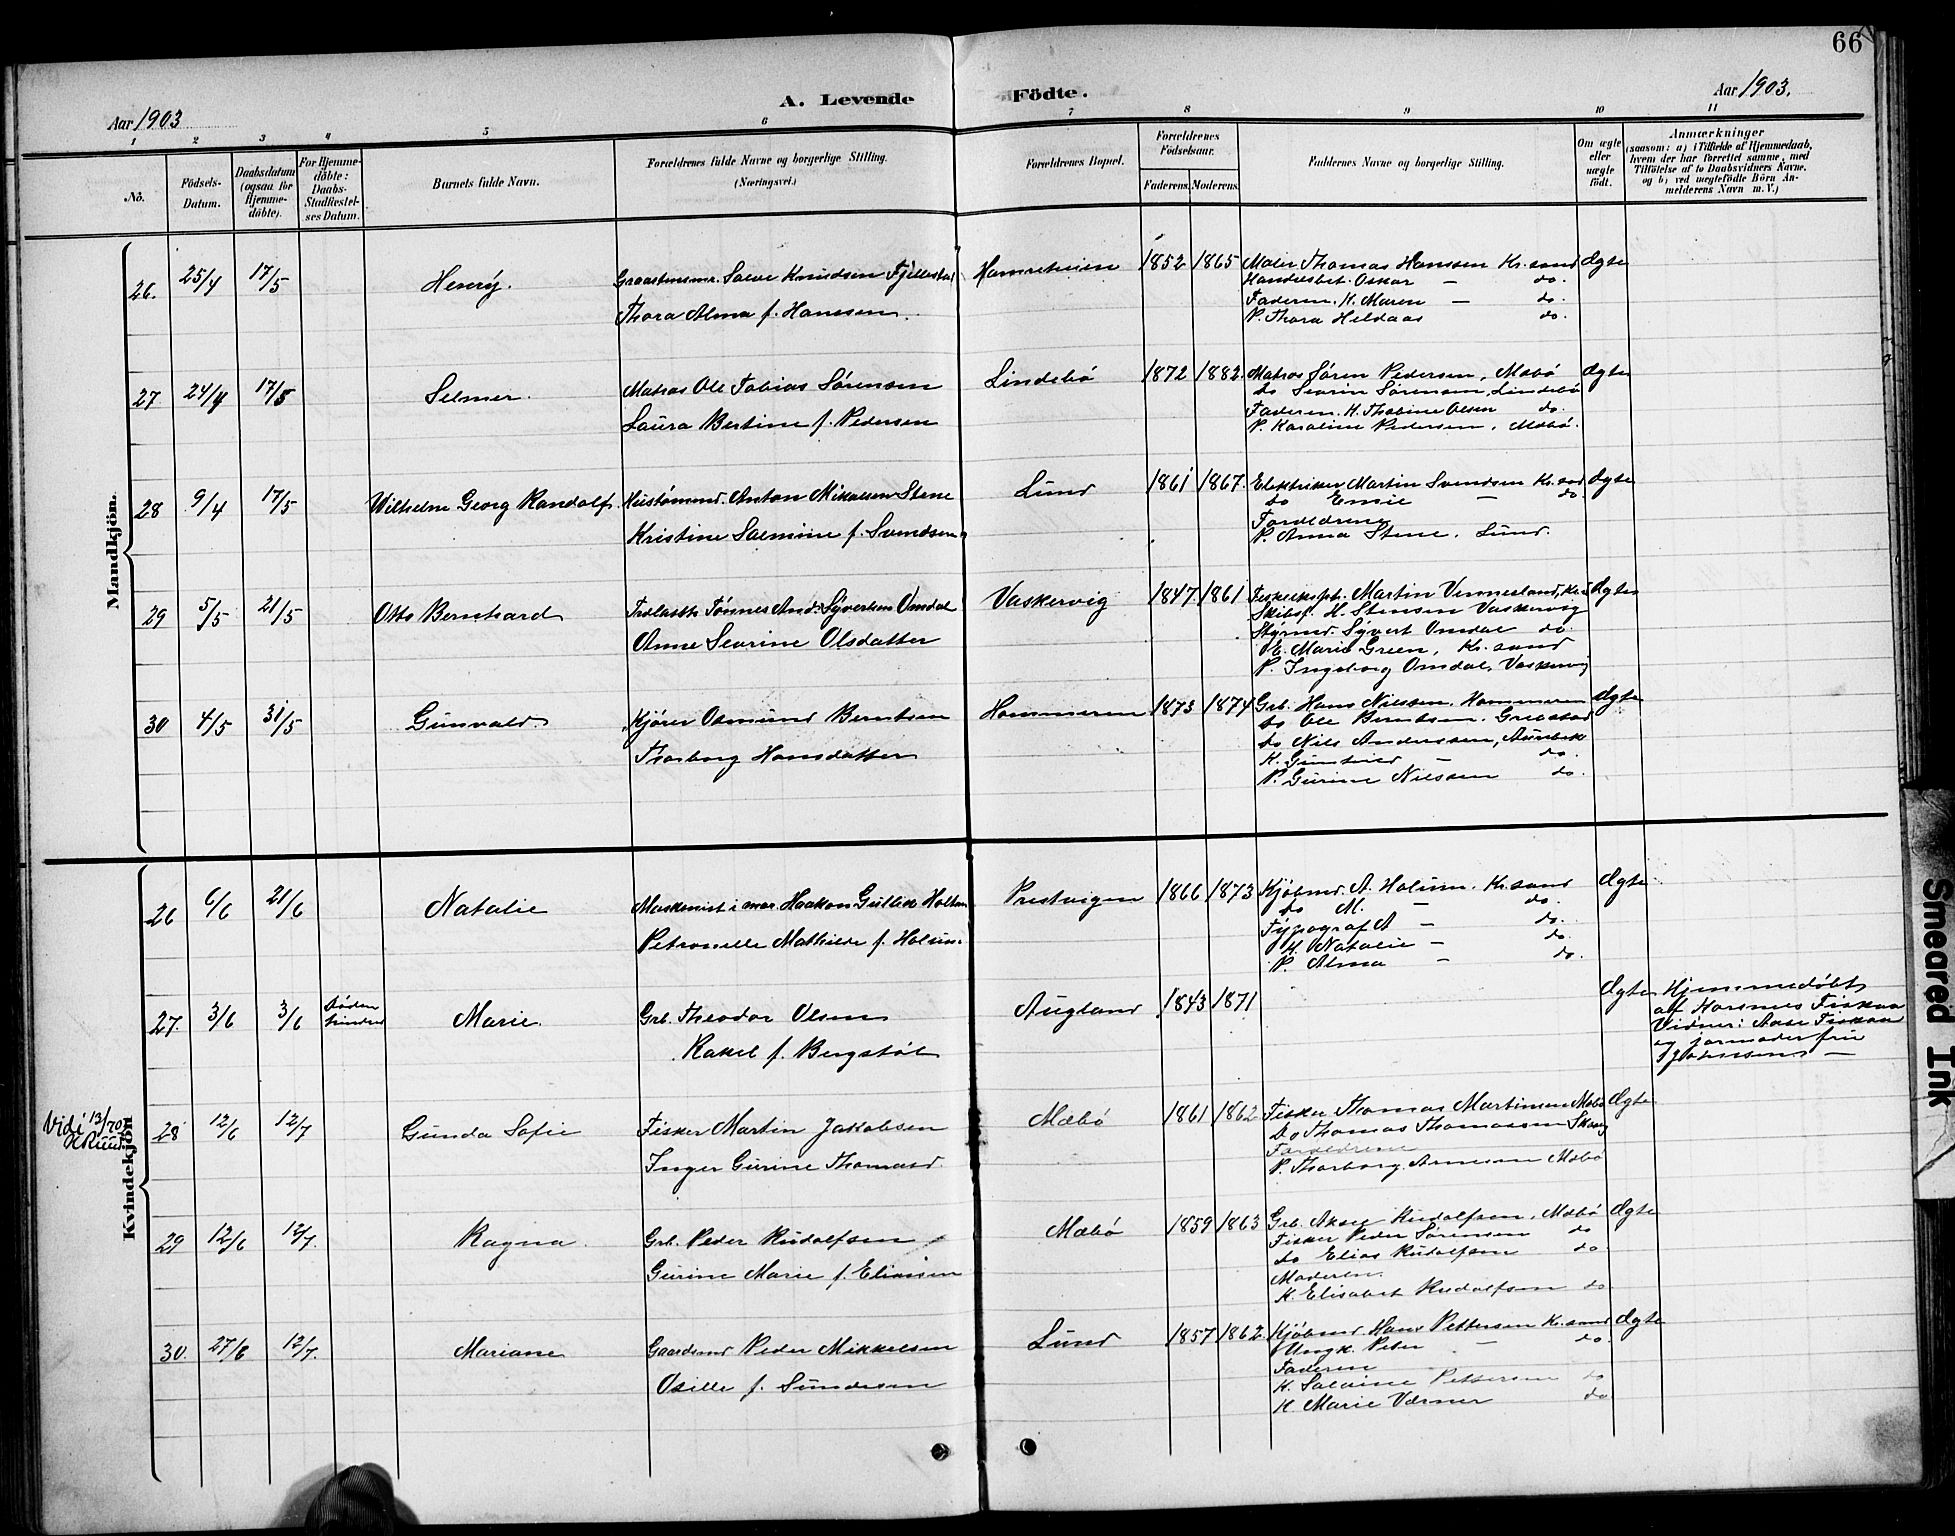 66
Aar 1903
A. Levende Födte.
Aar 1903.
1 2 3 4 5 6 7 8 9 10 11
No.
Födsels-
Datum.
Daabsdatum
(ogsaa for
Hjemme-
döbte).
For Hjemme-
döbte:
Daabs-
Stadfæstel-
ses Datum.
Barnets fulde Navn.
Forældrenes fulde Navne og borgerlige Stilling.
(Næringsvei.)
Forældrenes Bopæl.
Forældrenes
Födselsaar.
Faderens. Moderens.
Faddernes Navne og borgerlige Stilling.
Om ægte
eller
uægte
födt.
Anmærkninger
(saasom: a) i Tilfælde af Hjemmedaab,
hvem der har forrettet samme, med
Tilföielse af to Daabsvidners Navne,
og b) ved uægtefödte Börn An-
melderens Navn m. V.)
Mandkjön.
26. 25/4 17/5 Henrÿ. Salve Knudsen Fjellestad
Thora Alma f. Hanssen.
1852 1865 Maler Thomas Hanssen Kr.sand Ægte
Handelsbet. Oskar – do.
Faderen. K. Maren – do.
P. Thora Heldaas do.
27 24/4 17/5 Selmer. Matros Ole Tobias Sørensen
Laura Bertine f. Pedersen
Lindebö 1872 1882. Matros Søren Pedersen, Mæbö Ægte
do Severin Sørensen, Lindebö
Faderen. K. Thobine Olsen do.
P. Karoline Pedersen, Mæbö.
28 9/4 17/5 Wilhelm Georg Randolf. Anton Mikalsen Stene
Kristine Salmine f. Svendsen
Lund 1861 1867. Elektriker Martin Svendsen Kr.sand Ægte
do Emil – do
Forældrene
P. Anna Stene, Lund.
29 5/5 21/5 Otto Bernhard Tønnes And. Syvertsen Omdal
Anne Severine Olsdatter
Vaskervig 1847. 1861 Martin Vennesland, Kr.s Ægte
Skibsf. H. Stensen Vaskervig
Styrmd. Syvert Omdal do.
E. Marie Green, Kr.sand
P. Ingeborg Omdal, Vaskervig
30 4/5 31/5 Gunvald. Kjører Osmund Berntsen
Thorborg Hansdatter
Hammeren 1873 1874 Grb. Hans Nielsen, Hammeren Ægte
do Ole Berntsen,
do Nils Anderssen,
K. Gunhild – do.
P. Gurine Nielsen do.
Kvindekjön
26 6/6 21/6 Natalie Maskinist i mar. Haakon Gullik Holtem
Petronelle Mathilde f. Holum.
Prestvigen 1866 1873 Kjöbmd. A. Holum, Kr.sand Ægte
do M. – do.
Typograf A – do.
K. Natalie – do.
P. Alma – do.
27. 3/6 3/6 Døden
hindred Marie. Grb. Theodor Olsen
Rakel f. Bergstöl
Augland 1843 1871 Ægte Hjemmedøbt
af Fiskaa
Vidner: Aase Fiskaa
og jormoder fru
–
Vidi 13/
28 12/6 12/7 Gunda Sofie Fisker Martin Jakobsen
Inger Gurine Thomasd.
Mæbö 1861 1862 Fisker Thomas Martinsen Mæbö Ægte
do Thomas Thomassen
Forældrene
P. Thorborg Arnesen Mæbö
29 12/6 12/7. Ragna. Grb. Peder Rudolfsen
Gurine Marie f. Eliassen
Mæbö 1859 1863 Grb. Aksel Rudolfsen, Mæbö Ægte
Fisker Peder Sørensen do
do Elias Rudolfsen do
Moderen.
K. Elisabet Rudolfsen do
30. 27/6 12/7. Mariane Gaardmd Peder Mikkelsen
Osille f. Sundesen
Lund 1857 1862 Kjöbmd. Hans Pettersen Kr.sand Ægte
Ungk. Peter – do.
Faderen
K. Salvine Pettersen do
K. Marie Værner do
Smeared Ink